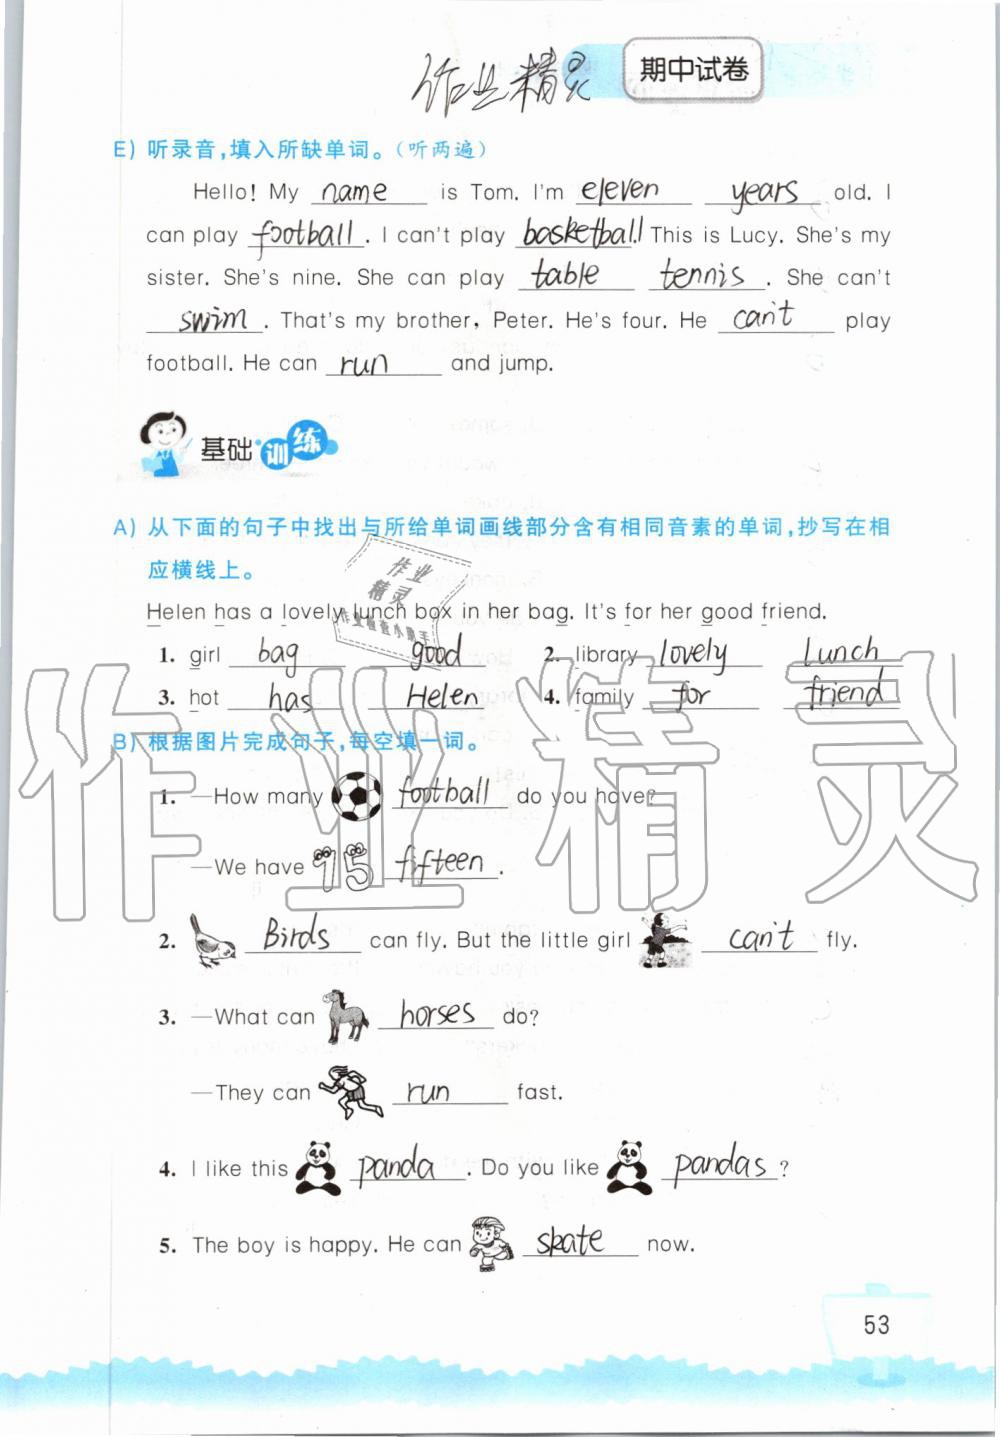 作业精灵
期中试卷
E) 听录音，填入所缺单词。（听两遍）
Hello! My name is Tom. I'm eleven years old. I
can play football. I can't play basketball. This is Lucy. She's my
sister. She's nine. She can play table tennis. She can't
swim. That's my brother, Peter. He's four. He can't play
football. He can run and jump.
基础训练
A) 从下面的句子中找出与所给单词画线部分含有相同音素的单词，抄写在相
应横线上。
Helen has a lovely lunch box in her bag. It's for her good friend.
1. girl bag good 2. library lovely lunch
3. hot has Helen 4. family for friend
B) 根据图片完成句子，每空填一词。
1. —How many football do you have?
—We have 15 fifteen.
2. Birds can fly. But the little girl can't fly.
3. —What can horses do?
—They can run fast.
4. I like this panda. Do you like pandas?
5. The boy is happy. He can skate now.
53
作业精灵
作业
精灵
作业检查小助手